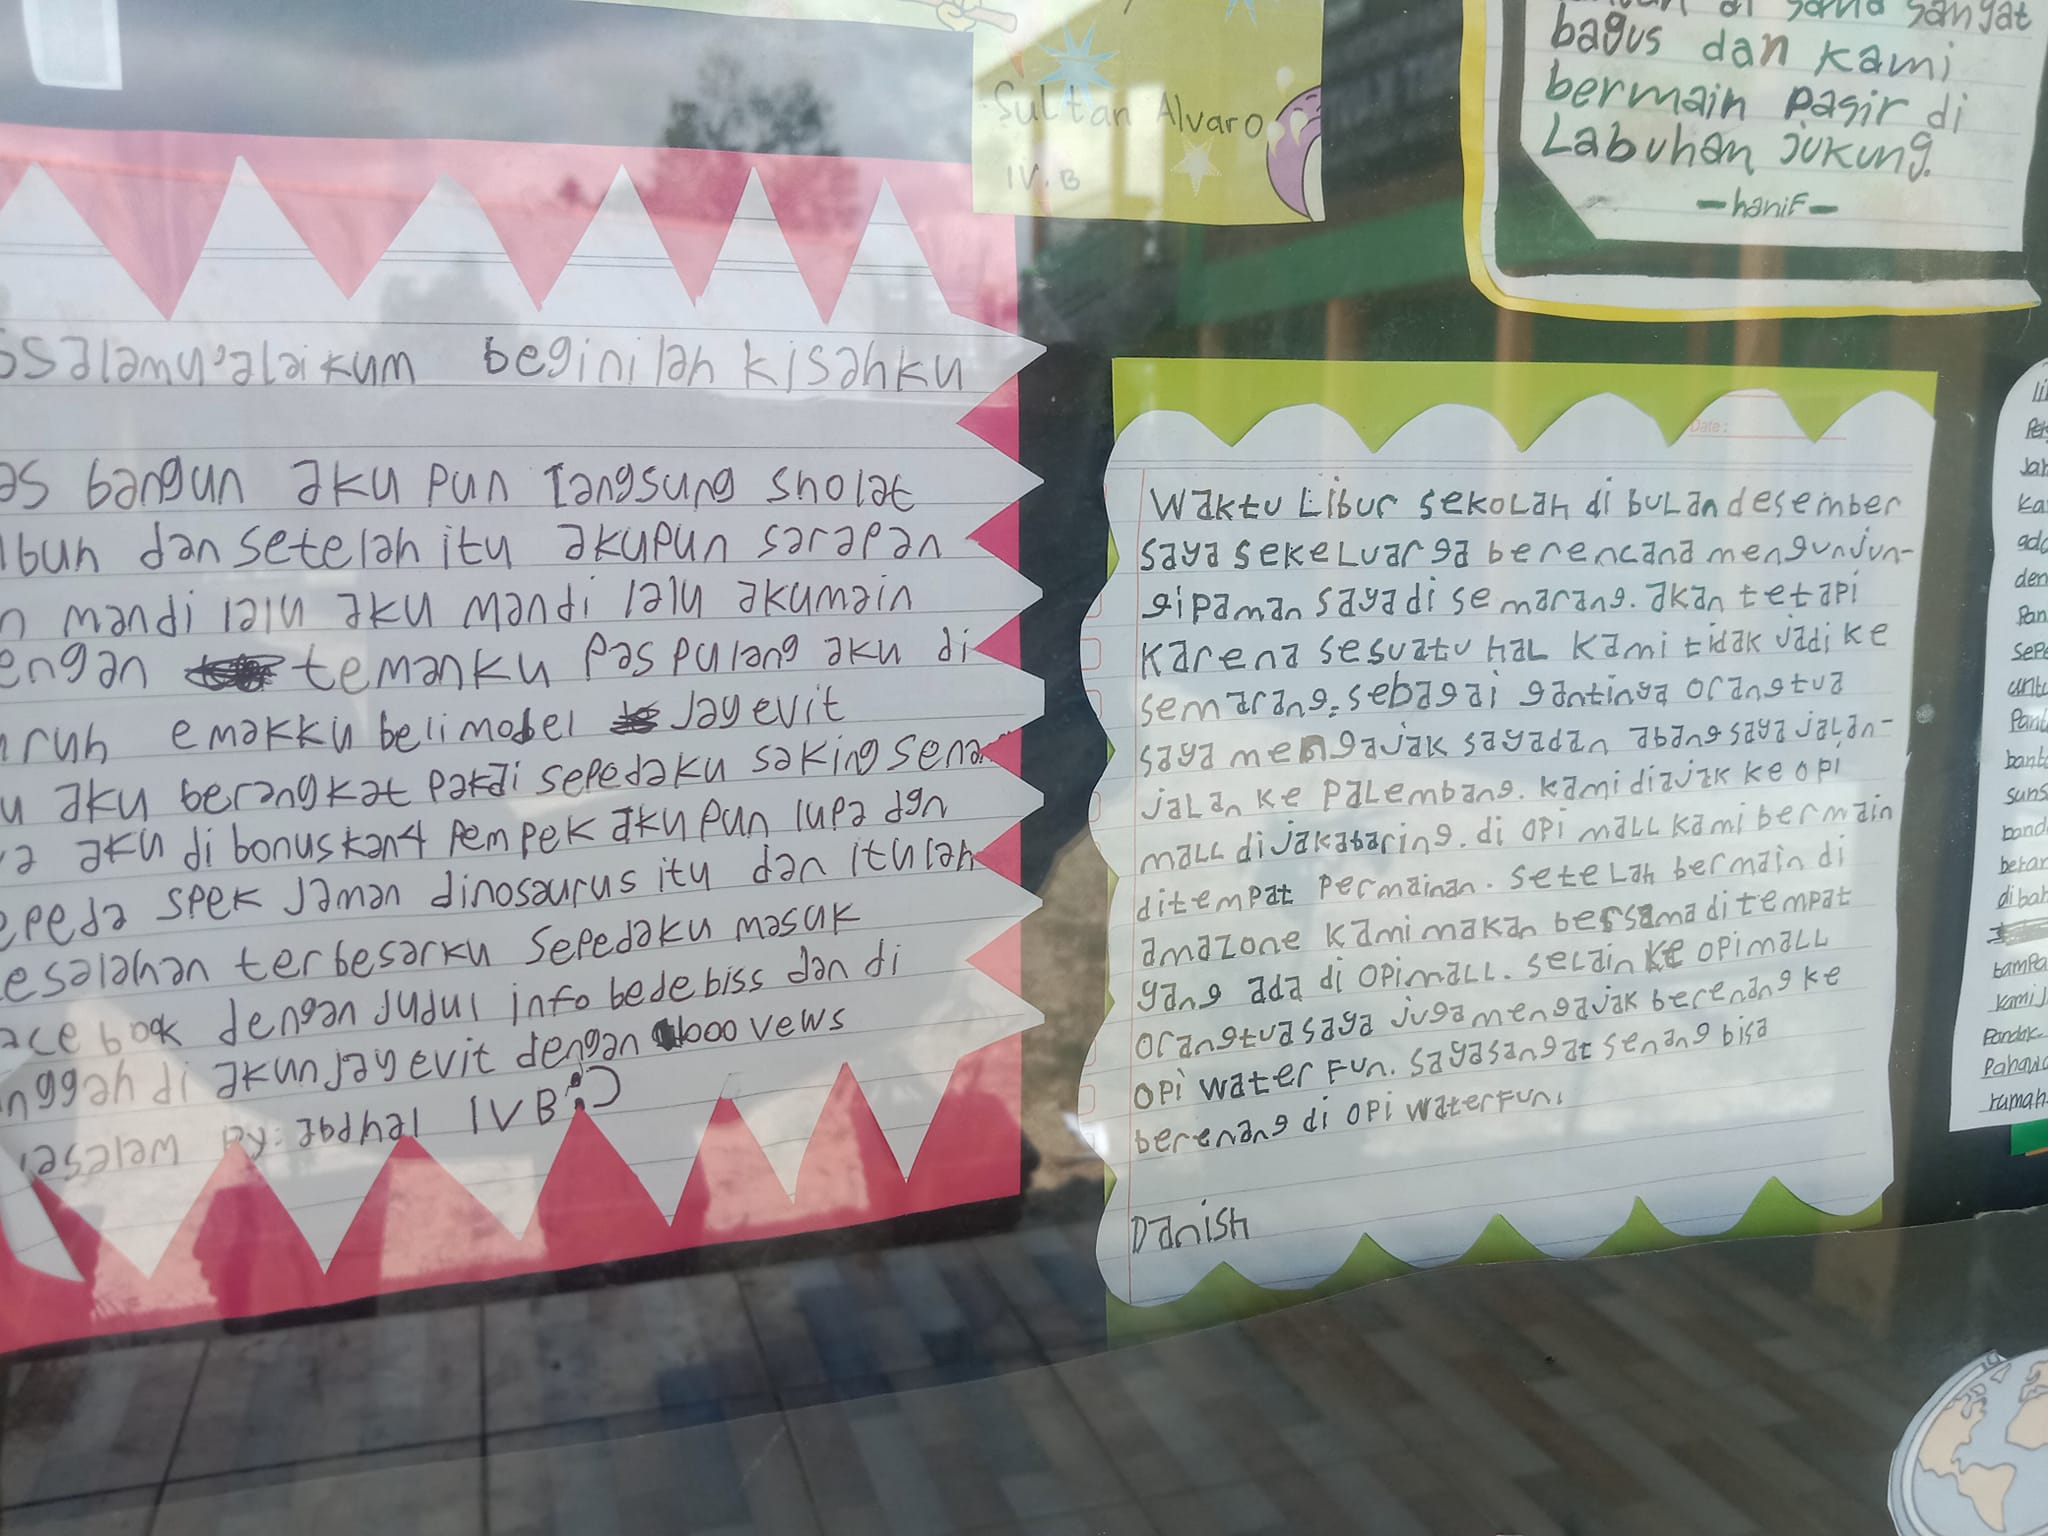 Sultan Alvaro
IV.B
sana sangat
bagus dan kami
bermain pasir di
Labuhan jukung.
-hanif-
ssalamu'alaikum beginilah kisahku
as bangun aku pun langsung sholat
ubuh dan setelah itu akupun sarapan
n mandi lalu aku mandi lalu akumain
engan temanku Pas pulang aku di
uruh emakku beli model Jayevit
u aku berangkat pakai sepedaku saking sena
ya aku di bonuskan 4 Pempek aku pun lupa dgn
epeda spek Jaman dinosaurus itu dan itulah
esalahan terbesarku sepedaku masuk
ace book dengan Judul info bedebiss dan di
nggah di akun jayevit dengan 600 vews
wasalam by: abdhel IVB :D
Waktu Libur sekolah di bulan desember
saya sekeluarga berencana mengunjun-
gi paman saya di semarang. akan tetapi
karena sesuatu hal kami tidak jadi ke
semarang. sebagai gantinya orangtua
saya mengajak saya dan abang saya jalan-
jalan ke Palembang. kami diajak ke opi
mall di jakabaring. di opi mall kami bermain
ditempat permainan. setelah bermain di
amazone kami makan bersama ditempat
yang ada di opi mall. selain ke opi mall
orangtua saya juga mengajak berenang ke
opi water fun. saya sangat senang bisa
berenang di opi waterfun.
Danish